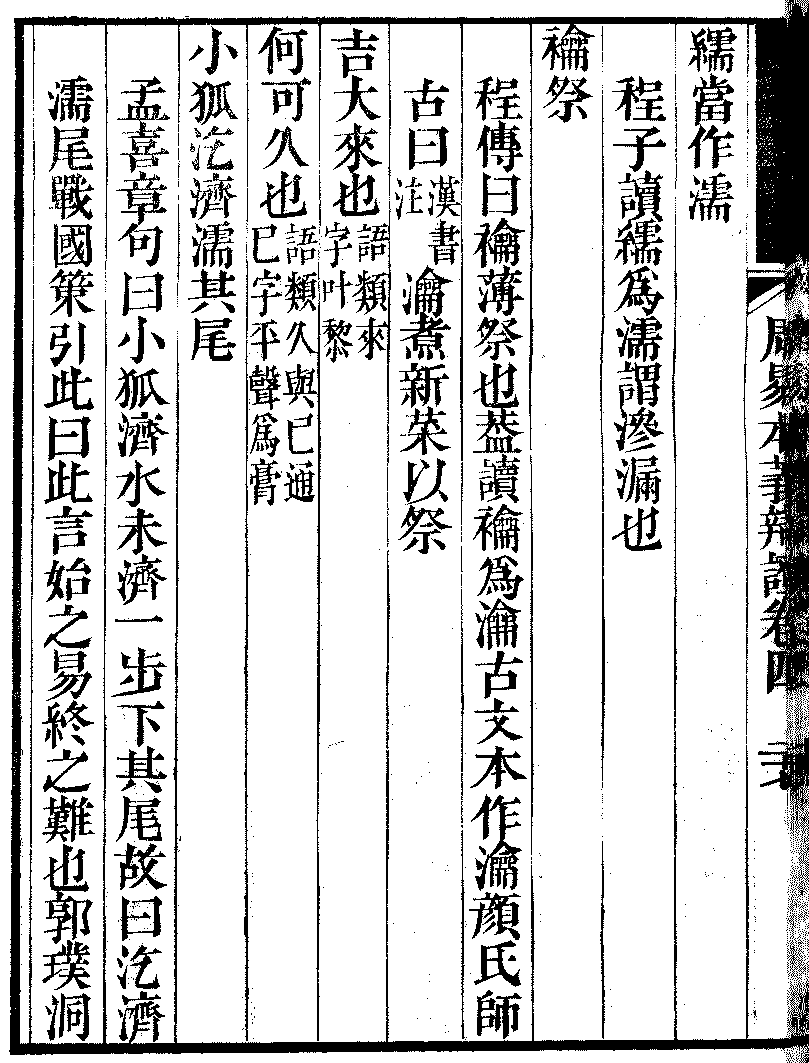 繻當作濡
程子讀繻爲濡謂滲漏也
禴祭
程傳曰禴薄祭也葢讀禴爲瀹古文本作瀹顏氏師
古曰漢書注瀹煮新菜以祭
吉大來也語類來字叶黎
何可久也語類久與已通已字平聲爲膏
小狐汔濟濡其尾
孟喜章句曰小狐濟水未濟一步下其尾故曰汔濟
濡尾戰國策引此曰此言始之易終之難也郭璞洞